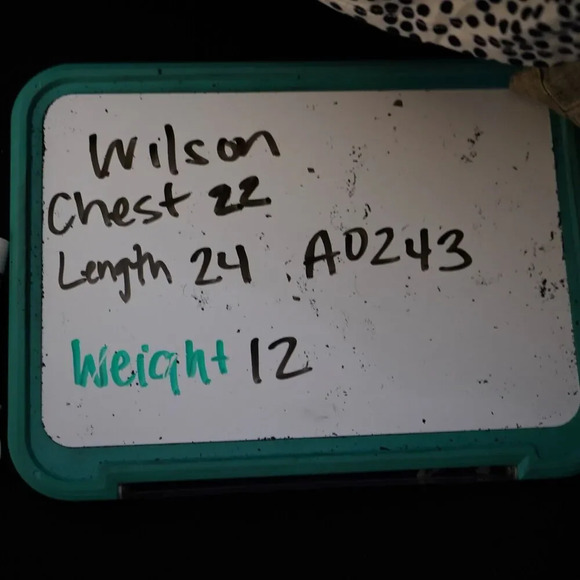 Wilson
Chest 22
Length 24 A0243
Weight 12